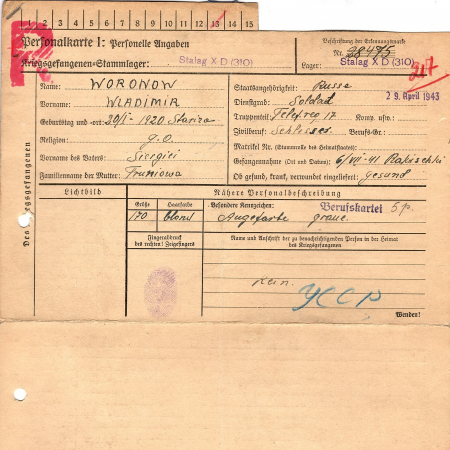 1 2 3 4 5 6 7 8 9 10 11 12 13 14 15
Personalkarte I: Personelle Angaben
Kriegsgefangenen-Stammlager: Stalag X D (310)
Beschriftung der Erkennungsmarke
Nr. 38475
Lager: Stalag X D (310)
Des Kriegsgefangenen
Name: WORONOW
Vorname: WLADIMIR
Geburtstag und -ort: 20/I-1920 Stariza
Religion: g.o.
Vorname des Vaters: Siergiei
Familienname der Mutter:
Staatsangehörigkeit: Russe
Dienstgrad: Soldat
Truppenteil: 17 Komp. usw.:
Zivilberuf: Schlosser Berufs-Gr.:
Matrikel Nr. (Stammrolle des Heimatstaates):
Gefangennahme (Ort und Datum): 6/VII-41
Ob gesund, krank, verwundet eingeliefert: gesund
29. April 1943
Lichtbild
Nähere Personalbeschreibung
Größe Haarfarbe Besondere Kennzeichen: Berufskartei
170 blond Augefarbe graue.
Fingerabdruck des rechten Zeigefingers
Name und Anschrift der zu benachrichtigenden Person in der Heimat des Kriegsgefangenen
УССР
Wenden!